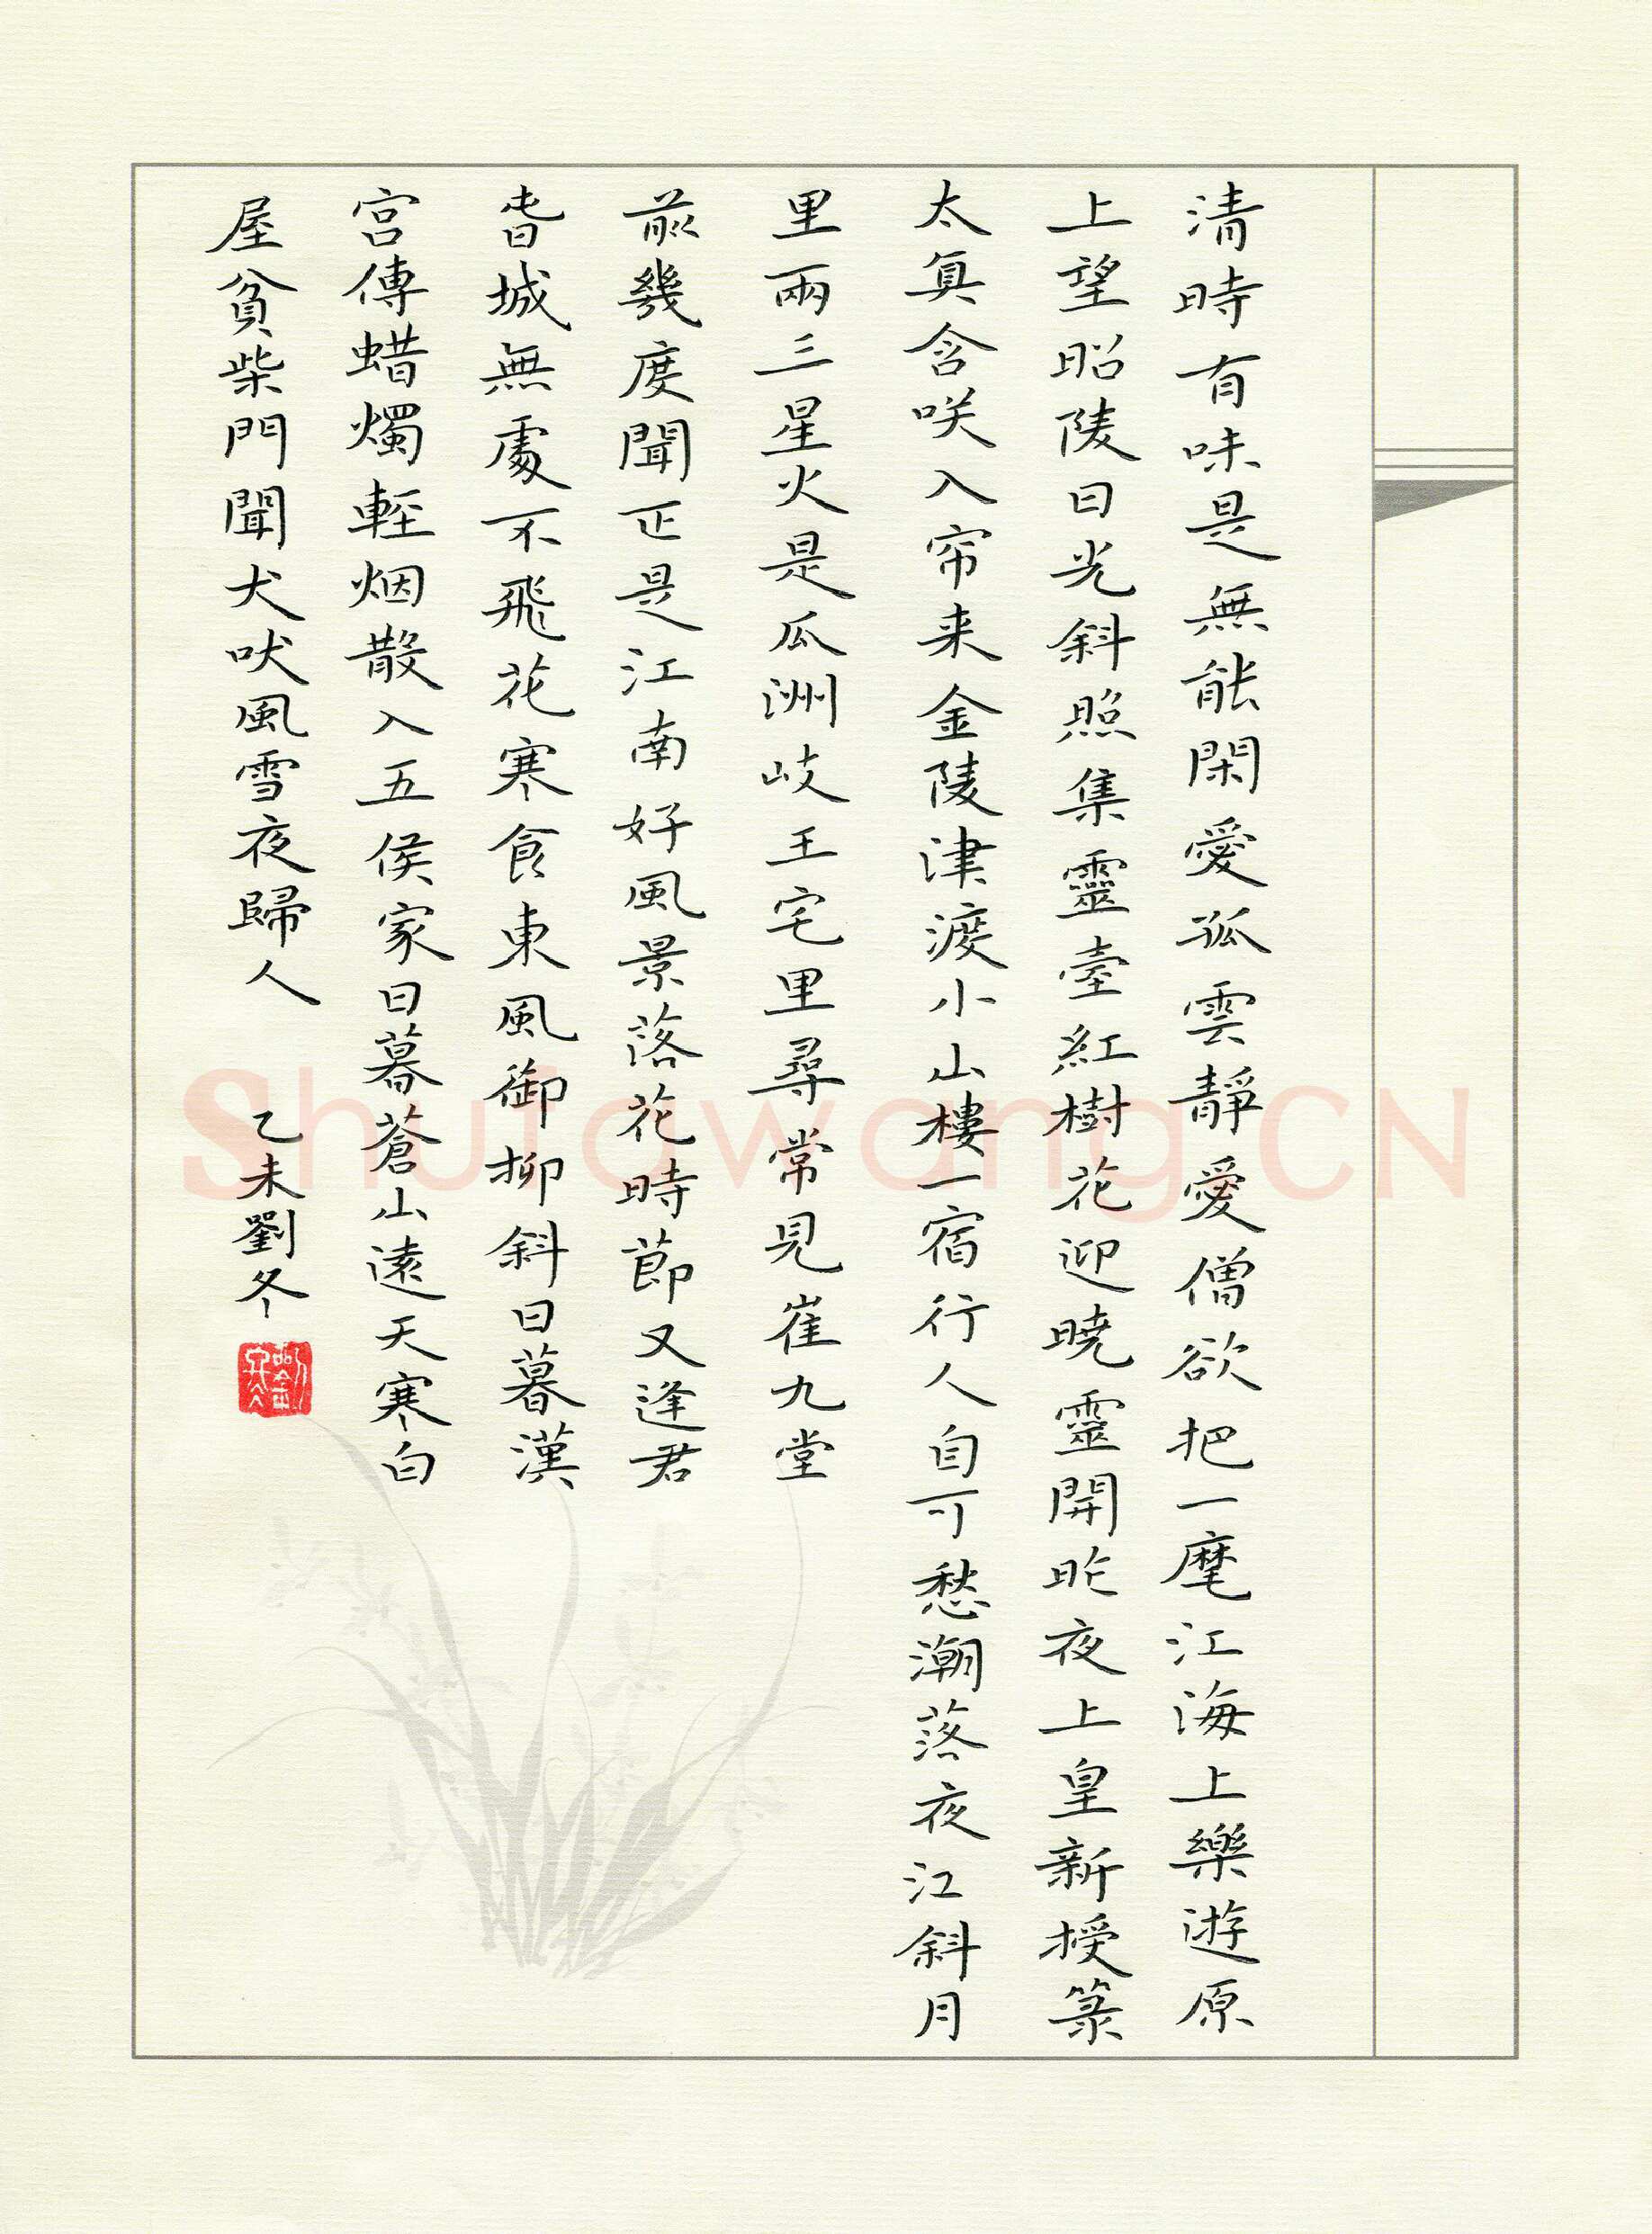 清時有味是無能閑愛孤雲靜愛僧欲把一麾江海上樂遊原
上望昭陵日光斜照集靈臺紅樹花迎曉靈開昨夜上皇新授箓
太真含咲入帘来金陵津渡小山樓一宿行人自可愁潮落夜江斜月
里兩三星火是瓜洲岐王宅里尋常見崔九堂
前幾度聞正是江南好風景落花時節又逢君
春城無處不飛花寒食東風御柳斜日暮漢
宮傳蜡燭輕烟散入五侯家日暮蒼山遠天寒白
屋貧柴門聞犬吠風雪夜歸人
乙未劉冬
Shufawang.CN